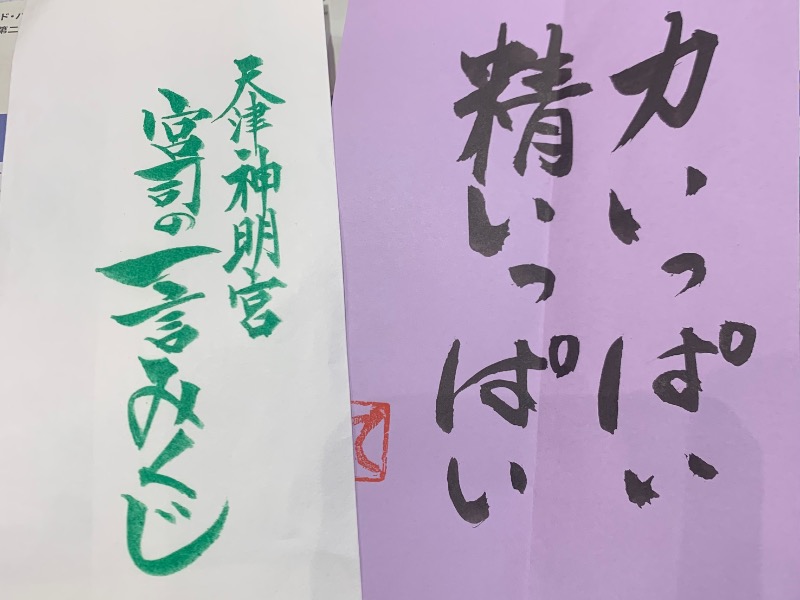 力いっぱい
精いっぱい
天津神明宮
宮司の一言みくじ
ド・
第二